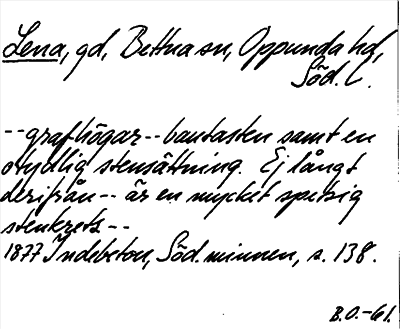 Lena, gd, Bettna sn, Oppunda hd,
Söd. L.
-- grafhögar -- bautasten samt en
otydlig stensättning. Ej långt
derifrån -- är en mycket spetsig
stenkrets --
1877 Indebetou, Söd. minnen, s. 138.
B.O.-61.